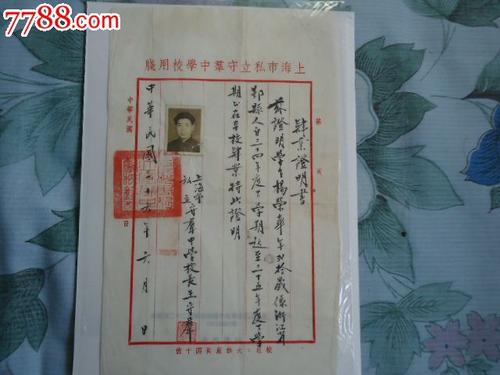 7788.com
上海市私立守羣中學校用牋
肄業證明書
茲證明學生楊榮華年功拾歲係浙江省
鄞縣人自三十四年度下學期起至三十五年度下學
期止在本校肄業特此證明
上海市
私立守羣中學校長王守羣
中華民國三十六年六月 日
中華民國
日